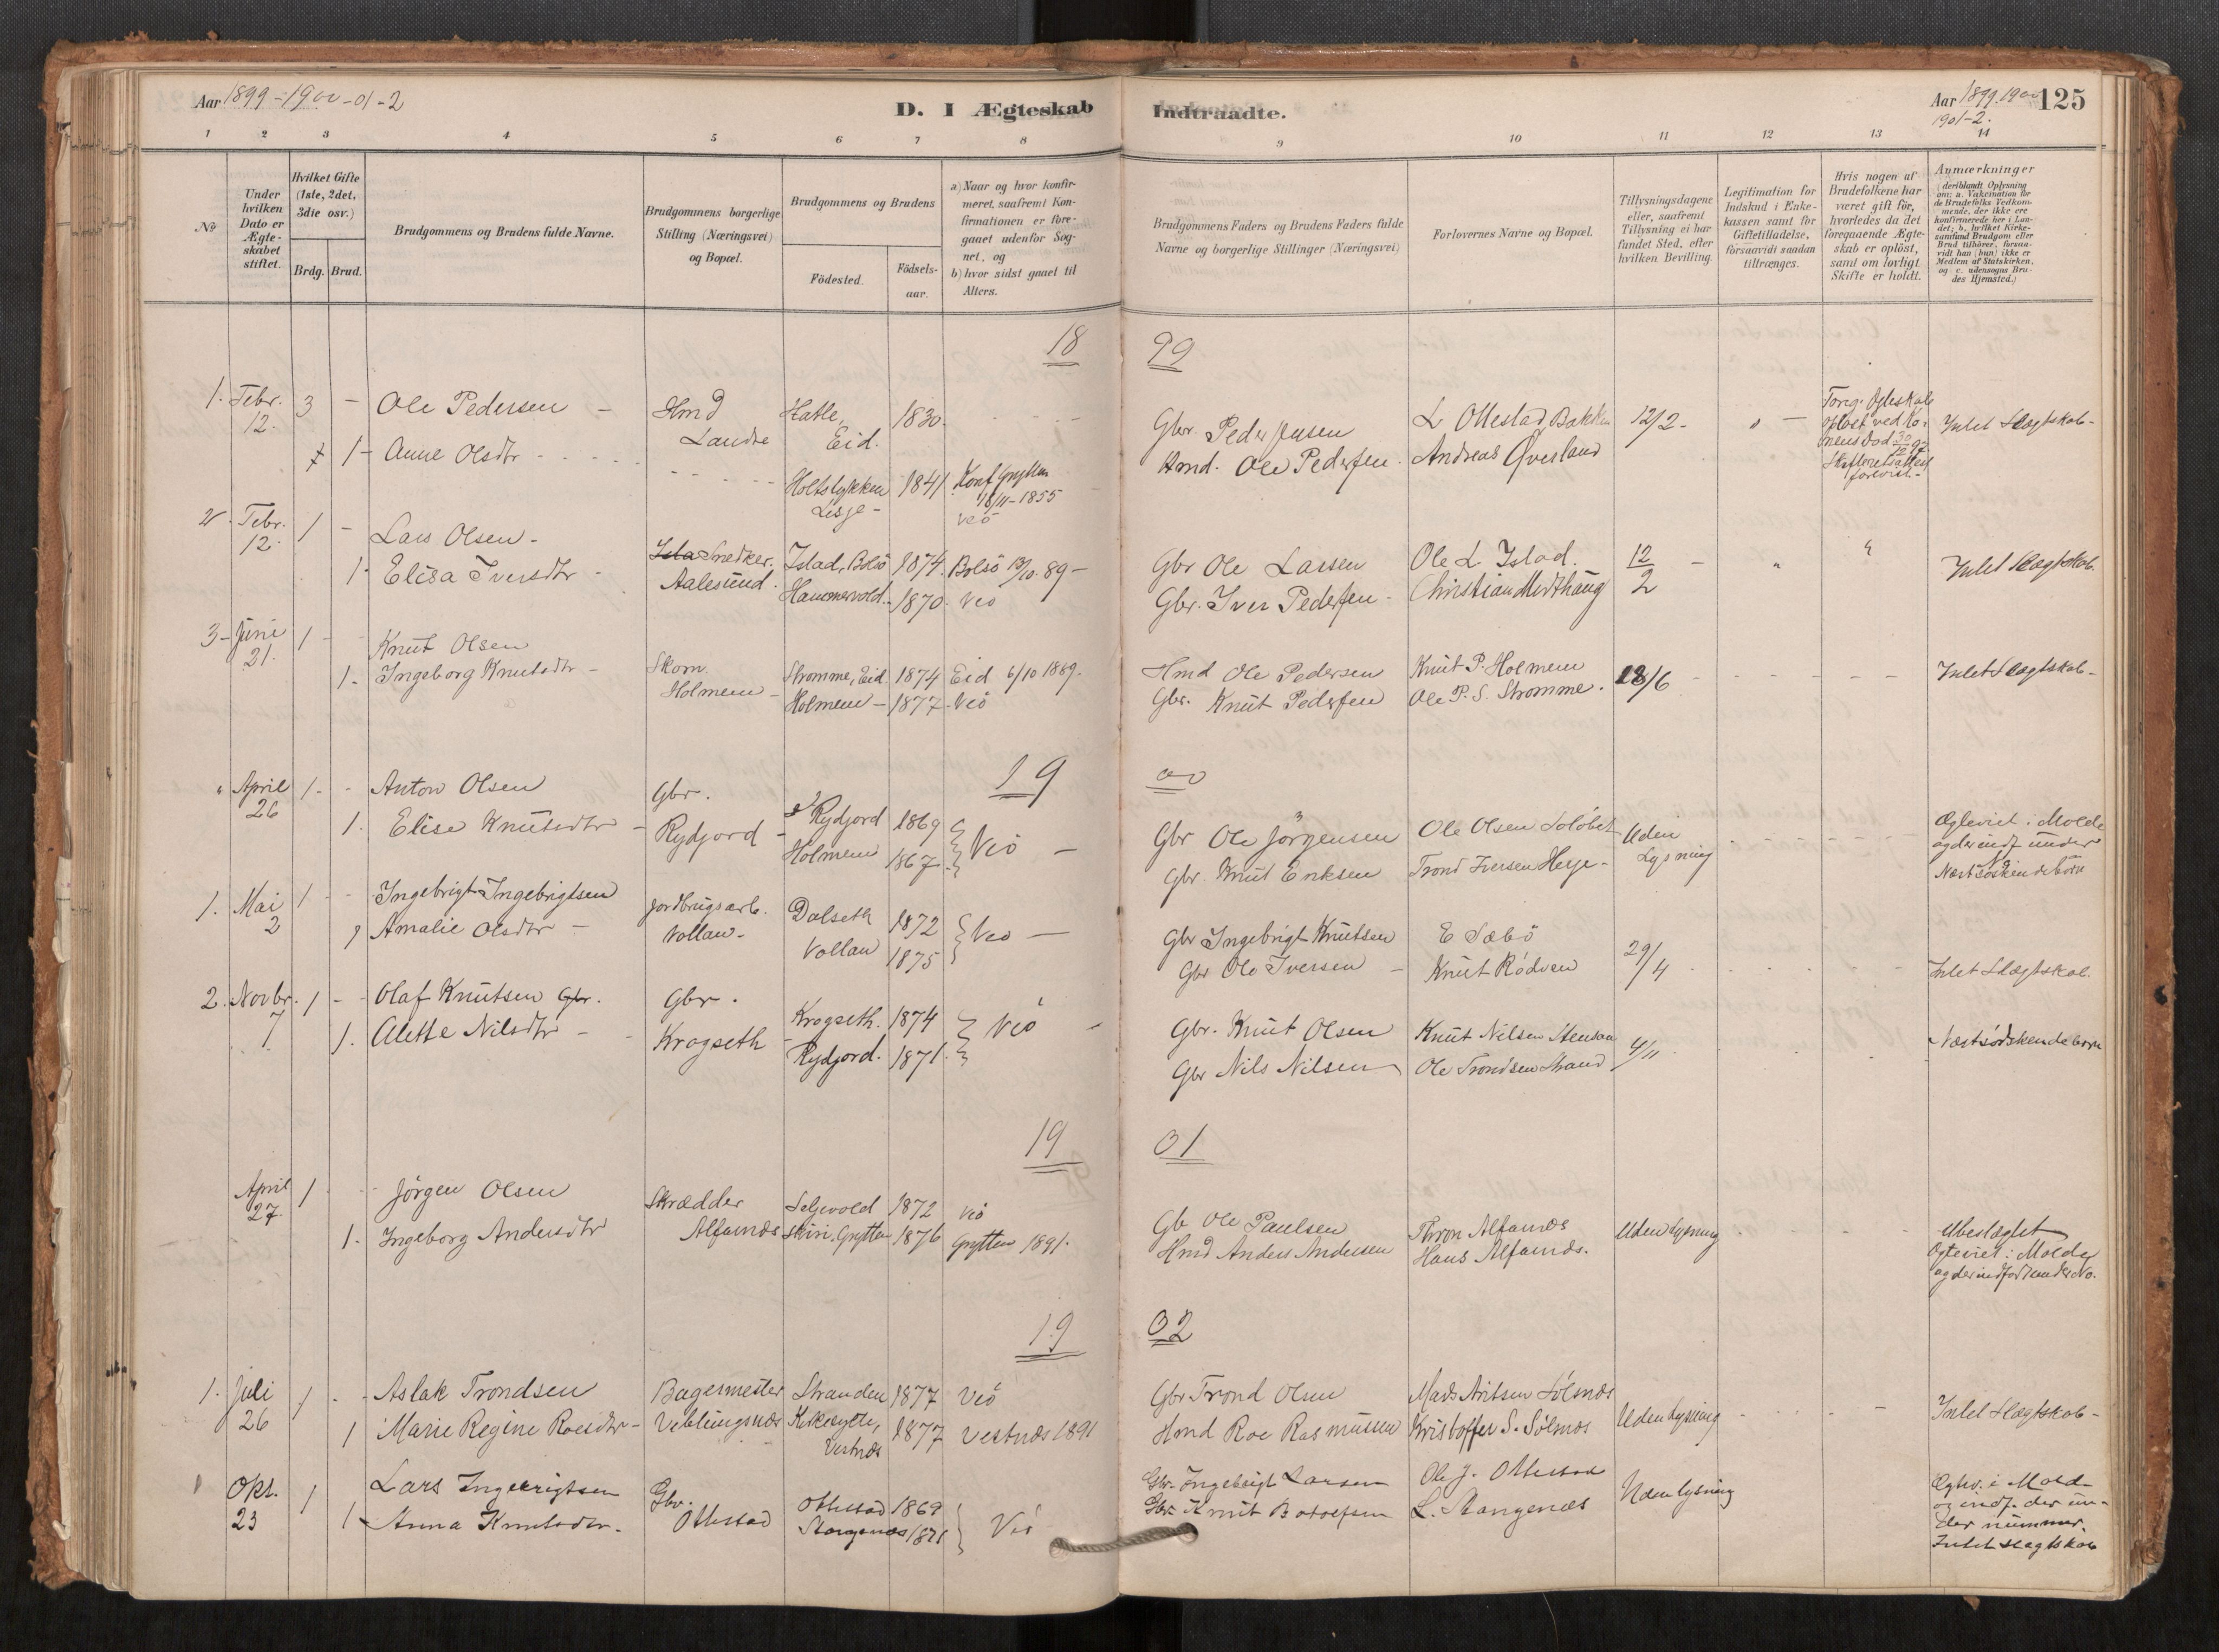 Aar 1899-1900-01-2
D. I Ægteskab
1 2 3 4 5 6 7 8
No
Under hvilken Dato er Ægteskabet stiftet.
Hvilket Gifte (1ste, 2det, 3die osv.)
Brdg. Brud.
Brudgommens og Brudens fulde Navne.
Brudgommens borgerlige Stilling (Næringsvei) og Bopæl.
Brudgommens og Brudens
Fødested.
Fødsels-aar.
a) Naar og hvor konfirmeret, saafremt Konfirmationen er foregaaet udenfor Sognet, og
b) hvor sidst gaaet til Alters.
Indtraadte.
Aar 1899. 1900
1901-2.
125
9 10 11 12 13 14
Brudgommens Faders og Brudens Faders fulde Navne og borgerlige Stillinger (Næringsvei)
Forlovernes Navne og Bopæl.
Tillysningsdagene eller, saafremt Tillysning ei har fundet Sted, efter hvilken Bevilling.
Legitimation for Indskud i Enkekassen samt for Giftetilladelse, forsaavidt saadan tiltrænges.
Hvis nogen af Brudefolkene har været gift før, hvorledes da det foregaaende Ægteskab er opløst, samt om lovligt Skifte er holdt.
Anmærkninger
(deriblandt Oplysning om: a. Vakcination for de Brudefolks Vedkommende, der ikke ere konfirmerede her i Landet; b. hvilket Kirkesamfund Brudgom eller Brud tilhører, forsaavidt han (hun) ikke er Medlem af Statskirken, og c. udensogns Brudes Hjemsted.)
18 99
1. Febr. 12. 3 - Ole Pedersen - Hmd Hatle, Eid. 1830.
1 - Anne Olsdtr Landre Holtslykken 1841 Konf Grytten 1855 Veö
Gbr. Peder Jensen L Ollestad Bakken 12/2 - Intet Slægtskab-
Hmd. Ole Pedersen. Andreas Øverland
2. Febr. 12. 1 - Lars Olsen - Snedker. Istad, Bolsö 1874. Bolsö 13/10 89 -
1 - Elisa Iversdtr - Aalesund. Hammervold. 1870. Veö
Gbr Ole Larsen Ole L. Istad. 12/2 - Intet Slægtskab.
Gbr. Iver Pedersen - Christian Midthaug
3 - Juni 21. 1 - Knut Olsen Skom. Strømme, Eid 1874 Eid 6/10 1889.
1. Ingeborg Knutsdtr - Holmem - Holmem - 1877 - Veö
Hmd Ole Pedersen Knut P. Holmem 18/6 - Intet Slægtskab-
Gbr. Knut Pedersen Ole P. S. Strømme.
19 00
April 26 1 - Anton Olsen Gbr. Rydjord 1869
1. Elise Knutsdtr - Rydjord - Holmem 1867 Veö -
Gbr Ole Jørgensen Ole Olsen Uden Lysning Ægteviet i Molde og der indf under No
Gbr. Knut Eriksen Trond Iversen Herje - Næstsøskendebørn
1. Mai 2 1 - Ingebrigt Ingebrigtsen Jordbrugsarb. Dalseth 1872
1 Amalie Olsdtr - Vollan - Vollan 1875 Veö -
Gbr Ingebrigt Knutsen E Sæbö 29/4
Gbr Ole Iversen - Knut Rødven Intet Slægtskab.
2. Novbr. 7 1 - Olaf Knutsen Gbr. Gbr. Krogseth. 1874
1. Alette Nilsdtr - Krogseth Rydjord. 1871. Veö
Gbr. Knut Olsen Knut Nilsen 4/11 Næstsødskendebørn
Gbr Nils Nilsen Ole Trondsen Strand
19 01
April 27. 1 Jörgen Olsen Skrædder Seljevold 1872 Veö
1. Ingeborg Andersdtr Alfarnæs Skiri, Grytten 1876 Grytten 1891.
Gb Ole Paulsen Thron Alfarnæs Uden Lysning Ubeslægtet
Hmd Anders Andersen Hans Alfarnæs. Ægteviet i Molde og der indført under No.
19 02
1. Juli 26 1 - Aslak Trondsen Bagermester Stranden 1877 Veö
1 Marie Regine Roesdtr - Veblungsnæs Vestnæs 1877 Vestnæs 1891
Gbr Trond Olsen Mads Sølsnæs Uden Lysning Intet Slægtskab-
Hmd Roe Rasmussen Kristoffer S. Sølsnæs
Okt. 23 1 Lars Ingebrigtsen Gbr. Ottestad 1869
1 Anna Knutsdtr. Ottestad Stangenæs 1871 Veö
Gbr. Ingebrigt Larsen Ole J. Ottestad Uden lysning Ægtev. i Molde og indf. der under nummer.
Gbr. Knut Botolfsen L. Stangenæs Intet slægtskab